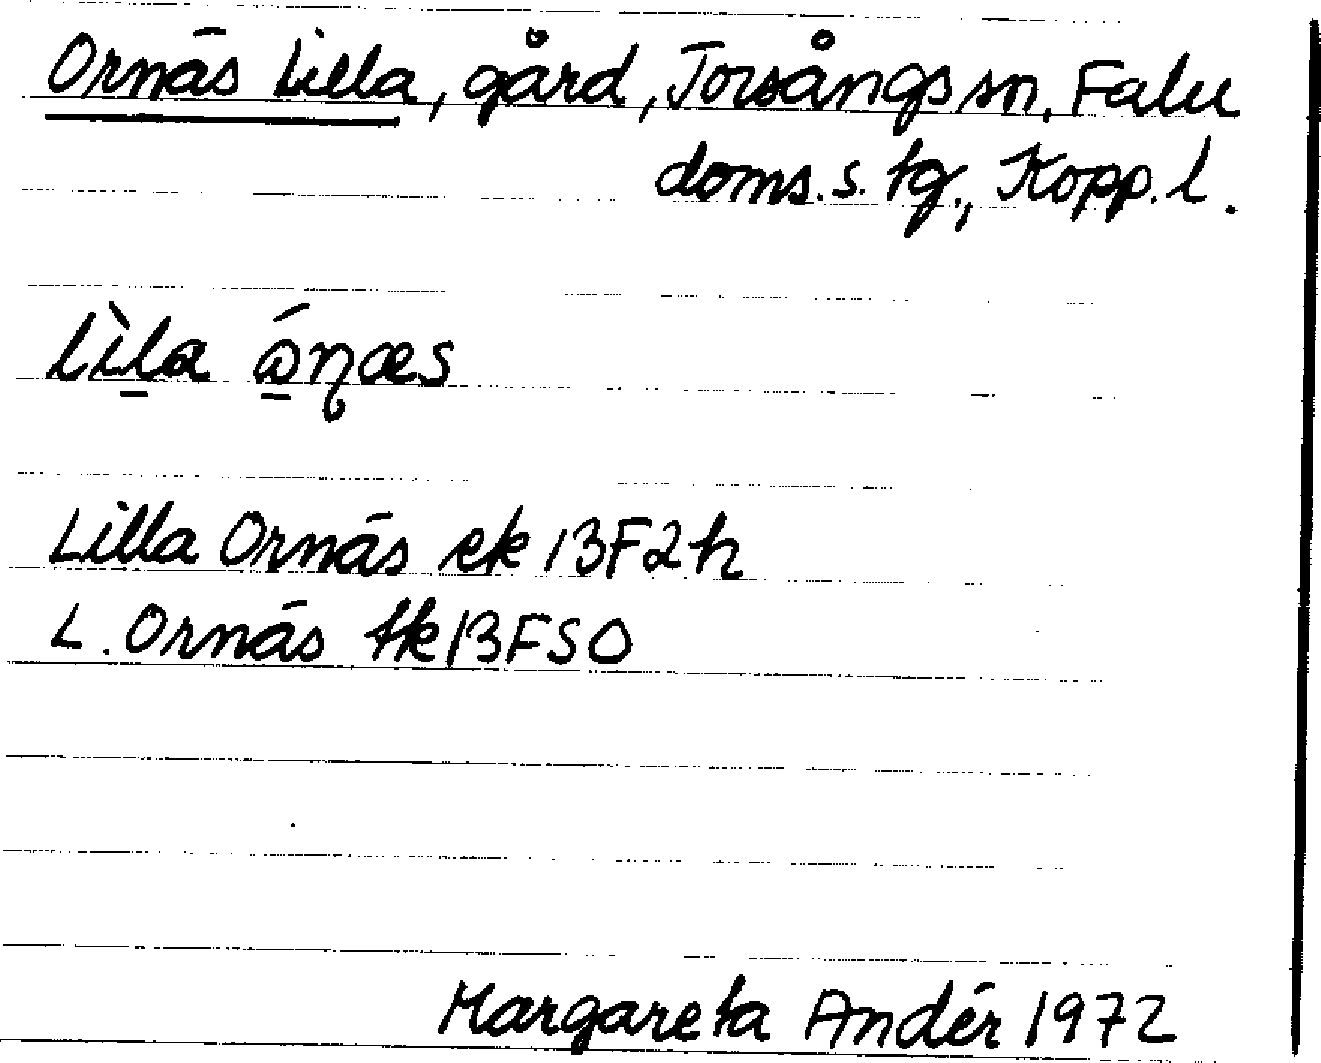 Ornäs Lilla, gård, Torsångs sn, Falu
doms.s. tg., Kopp. l.
lìla ánæs
Lilla Ornäs ek 13F2h
L. Ornäs tk 13FSO
Margareta Andér 1972